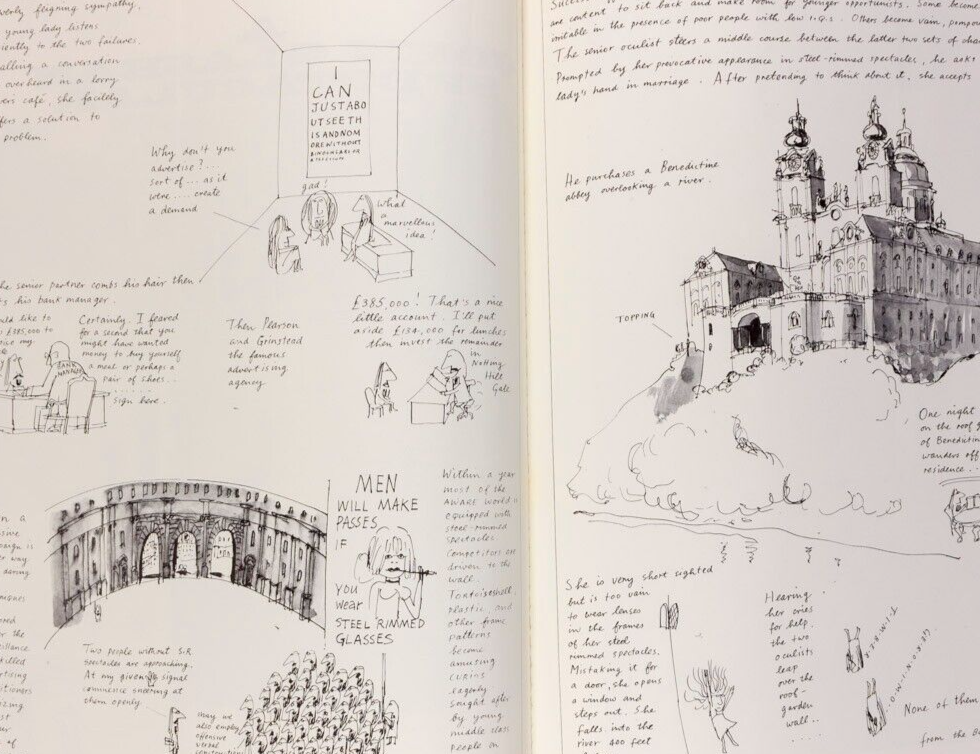 verly feigning sympathy.
young lady listens
iently to the two failures.
alling a conversation
overheard in a lorry
vers café, she facilely
ffers a solution to
problem.
I
CAN
JUSTABO
UTSEETH
ISANDNOM
OREWITHOUT
Why don't you
advertise?...
sort of... as it
were.... create
a demand
gad!
What
a
marvellous
idea!
he senior partner combs his hair then
s his bank manager.
uld like to
£385,000 to
my.
Certainly. I feared
for a second that you
might have wanted
money to buy yourself
a meal or perhaps a
pair of shoes...
sign here.
BANK
MANAGER
Then Pearson
and Grinstead
the famous
advertising
agency
£385,000! That's a nice
little account. I'll put
aside £134,000 for lunches
then invest the remainder
in
Notting
Hill
Gate
MEN
WILL MAKE
PASSES
IF
YOU
wear
STEEL RIMMED
GLASSES
Within a year
most of the
aware world is
equipped with
steel-rimmed
spectacles.
Competitors are
driven to the
wall.
Tortoiseshell,
plastic, and
other frame
patterns
become
amusing
curios
eagerly
sought after
by young
middle class
people on
n a
sive
paign is
er way.
daring
niques
the
Two people without S.R.
Spectacles are approaching.
At my given signal
commence sneering at
them openly
may we
also employ
offensive
verbal
are content to sit back and make room for younger opportunists. Some become
irritable in the presence of poor people with low I.Q.s. Others become vain, pompous
The senior oculist steers a middle course between the latter two sets of
Prompted by her provocative appearance in steel-rimmed spectacles, he asks
lady's hand in marriage. After pretending to think about it, she accepts
He purchases a Benedictine
abbey overlooking a river.
TOPPING
One night
on the roof g
of Benedictin
wanders off
residence...
She is very short sighted
but is too vain
to wear lenses
in the frames
of her steel
rimmed spectacles.
Mistaking it for
a door, she opens
a window and
steps out. She
falls into the
river 400 feet
Hearing
her cries
for help,
the two
oculists
leap
over the
roof-
garden
wall...
TIMBER
GERONIMO
None of them
from the